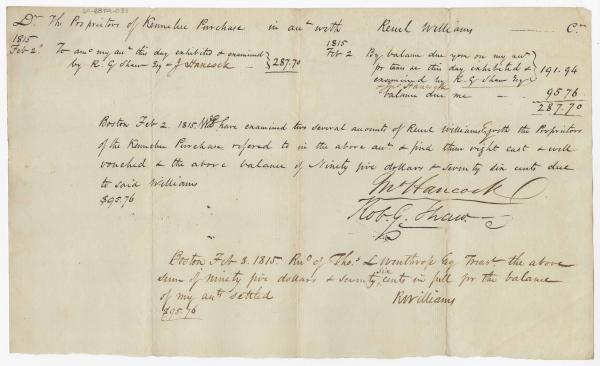 Dr. The Proprietors of Kennebec Purchase in acct with Reuel Williams Cr
1815
Feb 2. To amo my acct this day exhibited & examined
by R. G Shaw Esq & J Hancock 287.70
1815
Feb 2 By balance due you on my acct
for taxes this day exhibited &
examined by R. G Shaw Esq 191.94
& Jno Hancock
balance due me 95 76
287.70
Boston Feb 2. 1815. We have examined two several accounts of Reuel Williams Esq with the Proprietors
of the Kennebec Purchase refered to in the above acct & find them right cast & well
vouched & the above balance of Ninety five dollars & seventy six cents due
to said Williams
$95.76
Jno Hancock
Rob. G. Shaw
Boston Feb 8. 1815 Recd of Thos. L Winthrop Esq Treasr the above
sum of ninety five dollars & seventy six cents in full for the balance
of my acct settled
$95.76
R Williams